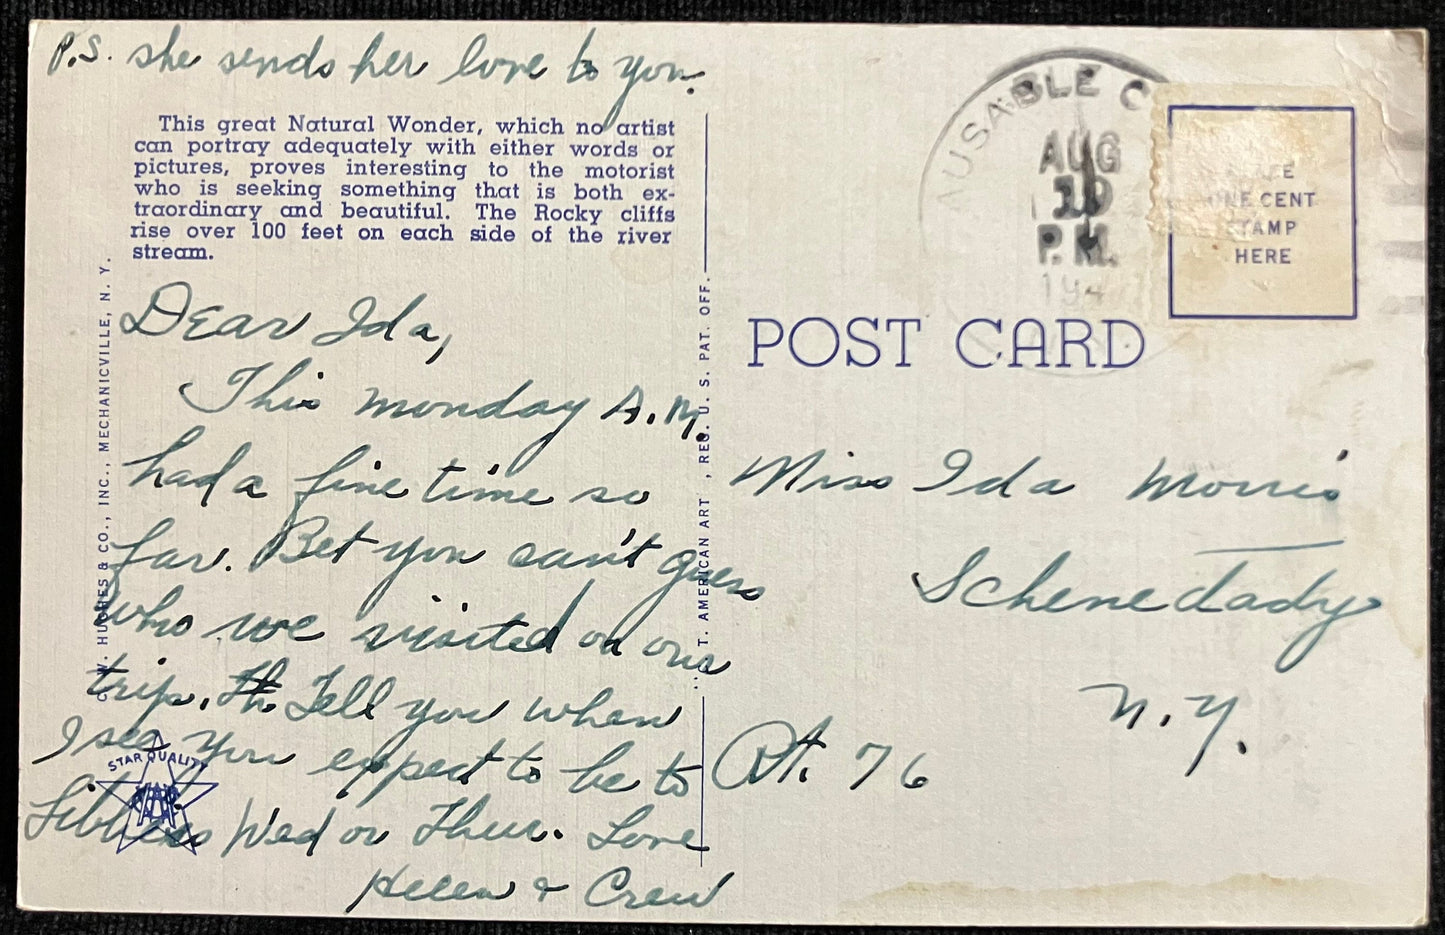 P.S. she sends her love to you.
This great Natural Wonder, which no artist
can portray adequately with either words or
pictures, proves interesting to the motorist
who is seeking something that is both ex-
traordinary and beautiful. The Rocky cliffs
rise over 100 feet on each side of the river
stream.
Dear Ida,
This monday A.M.
had a fine time so
far. Bet you can't guess
who we visited on our
trip. Tell you when
I see you expect to be to
Libbies Wed or Thur. Love
Helen & Crew
C. W. HUGHES & CO., INC., MECHANICVILLE, N. Y.
STAR QUALITY
"C. T. AMERICAN ART", REG. U. S. PAT. OFF.
AUSABLE C
AUG
19
P.M.
194
ONE CENT
STAMP
HERE
POST CARD
Miss Ida Morris
Schenectady
N.Y.
Rt. 76